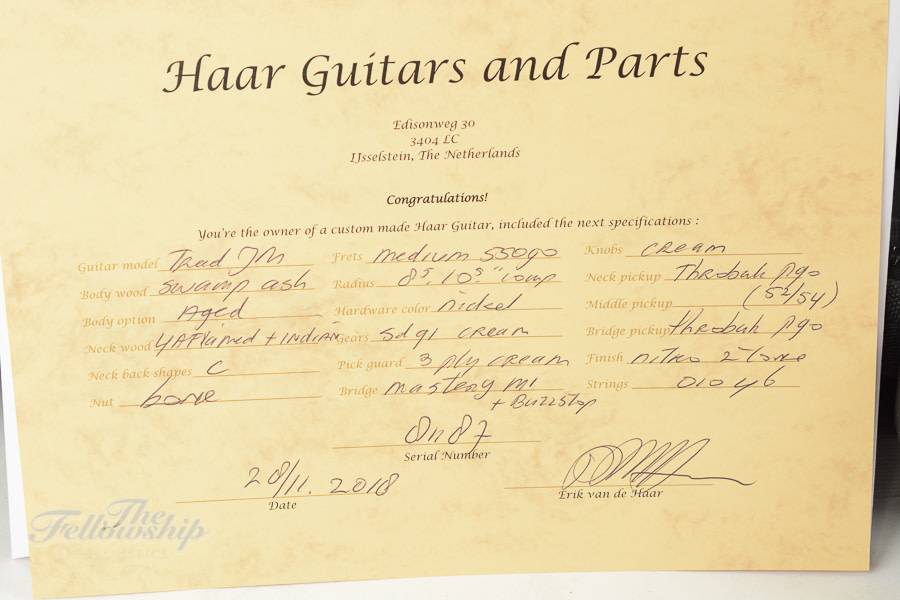 Haar Guitars and Parts
Edisonweg 30
3404 LC
IJsselstein, The Netherlands
Congratulations!
You're the owner of a custom made Haar Guitar, included the next specifications :
Guitar model Trad JM
Body wood swamp ash
Body option Aged
Neck wood 4AFlamed + INDIAN
Neck back shapes C
Nut bone
Frets medium 55090
Radius 8⁵.10⁵" comp
Hardware color nickel
Gears sd91 cream
Pick guard 3 ply cream
Bridge mastery M1
+ BuzzStop
Knobs cream
Neck pickup Throbak P90
Middle pickup (52/54)
Bridge pickup throbak P90
Finish nitro 2 tone
Strings 010 46
Serial Number
28/11. 2018
Date
Erik van de Haar
The
Fellowship